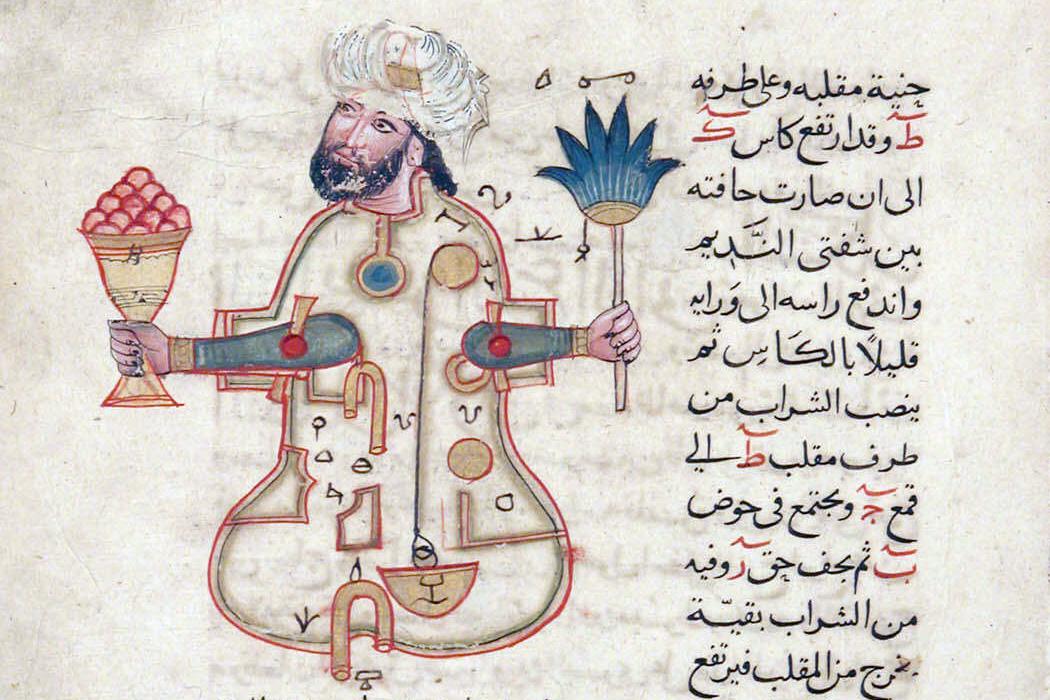 حنية مقلبه وعلى طرفه
ط وقدار تفع كاس ك
الى ان صارت حافته
بين شفتى النَّديم
واندفع راسه الى وَرايه
قليلًا بالكَاسِ ثم
ينصب الشراب من
طرف مقلب ط الي
قمع ج ويجتمع فى حوض
ب ثم يجف حق ر وفيه
من الشراب بقيّة
يخرج من المقلب فيرتفع